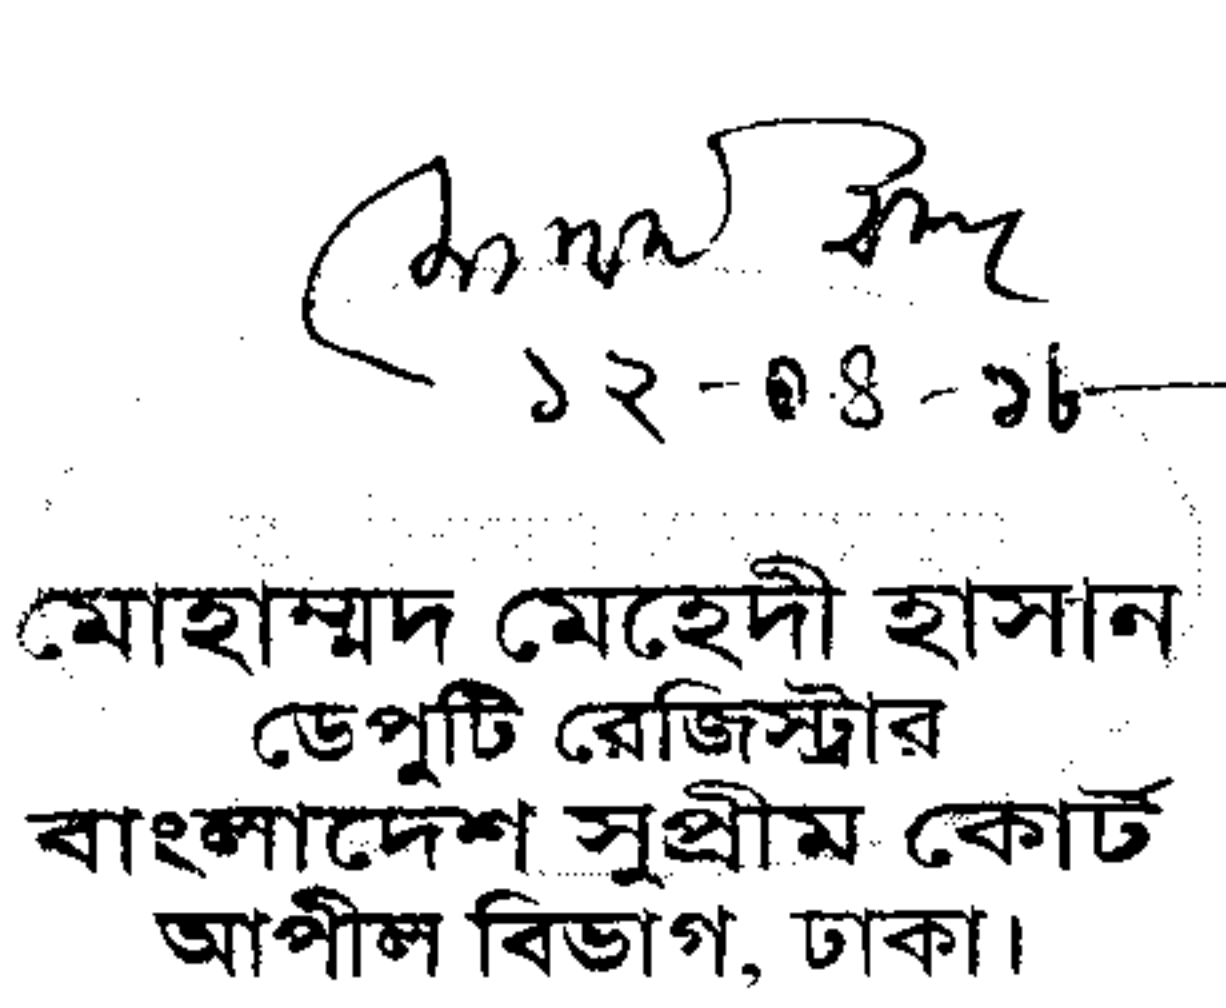 ১২-০৪-১৮
মোহাম্মদ মেহেদী হাসান
ডেপুটি রেজিস্ট্রার
বাংলাদেশ সুপ্রীম কোর্ট
আপীল বিভাগ, ঢাকা।